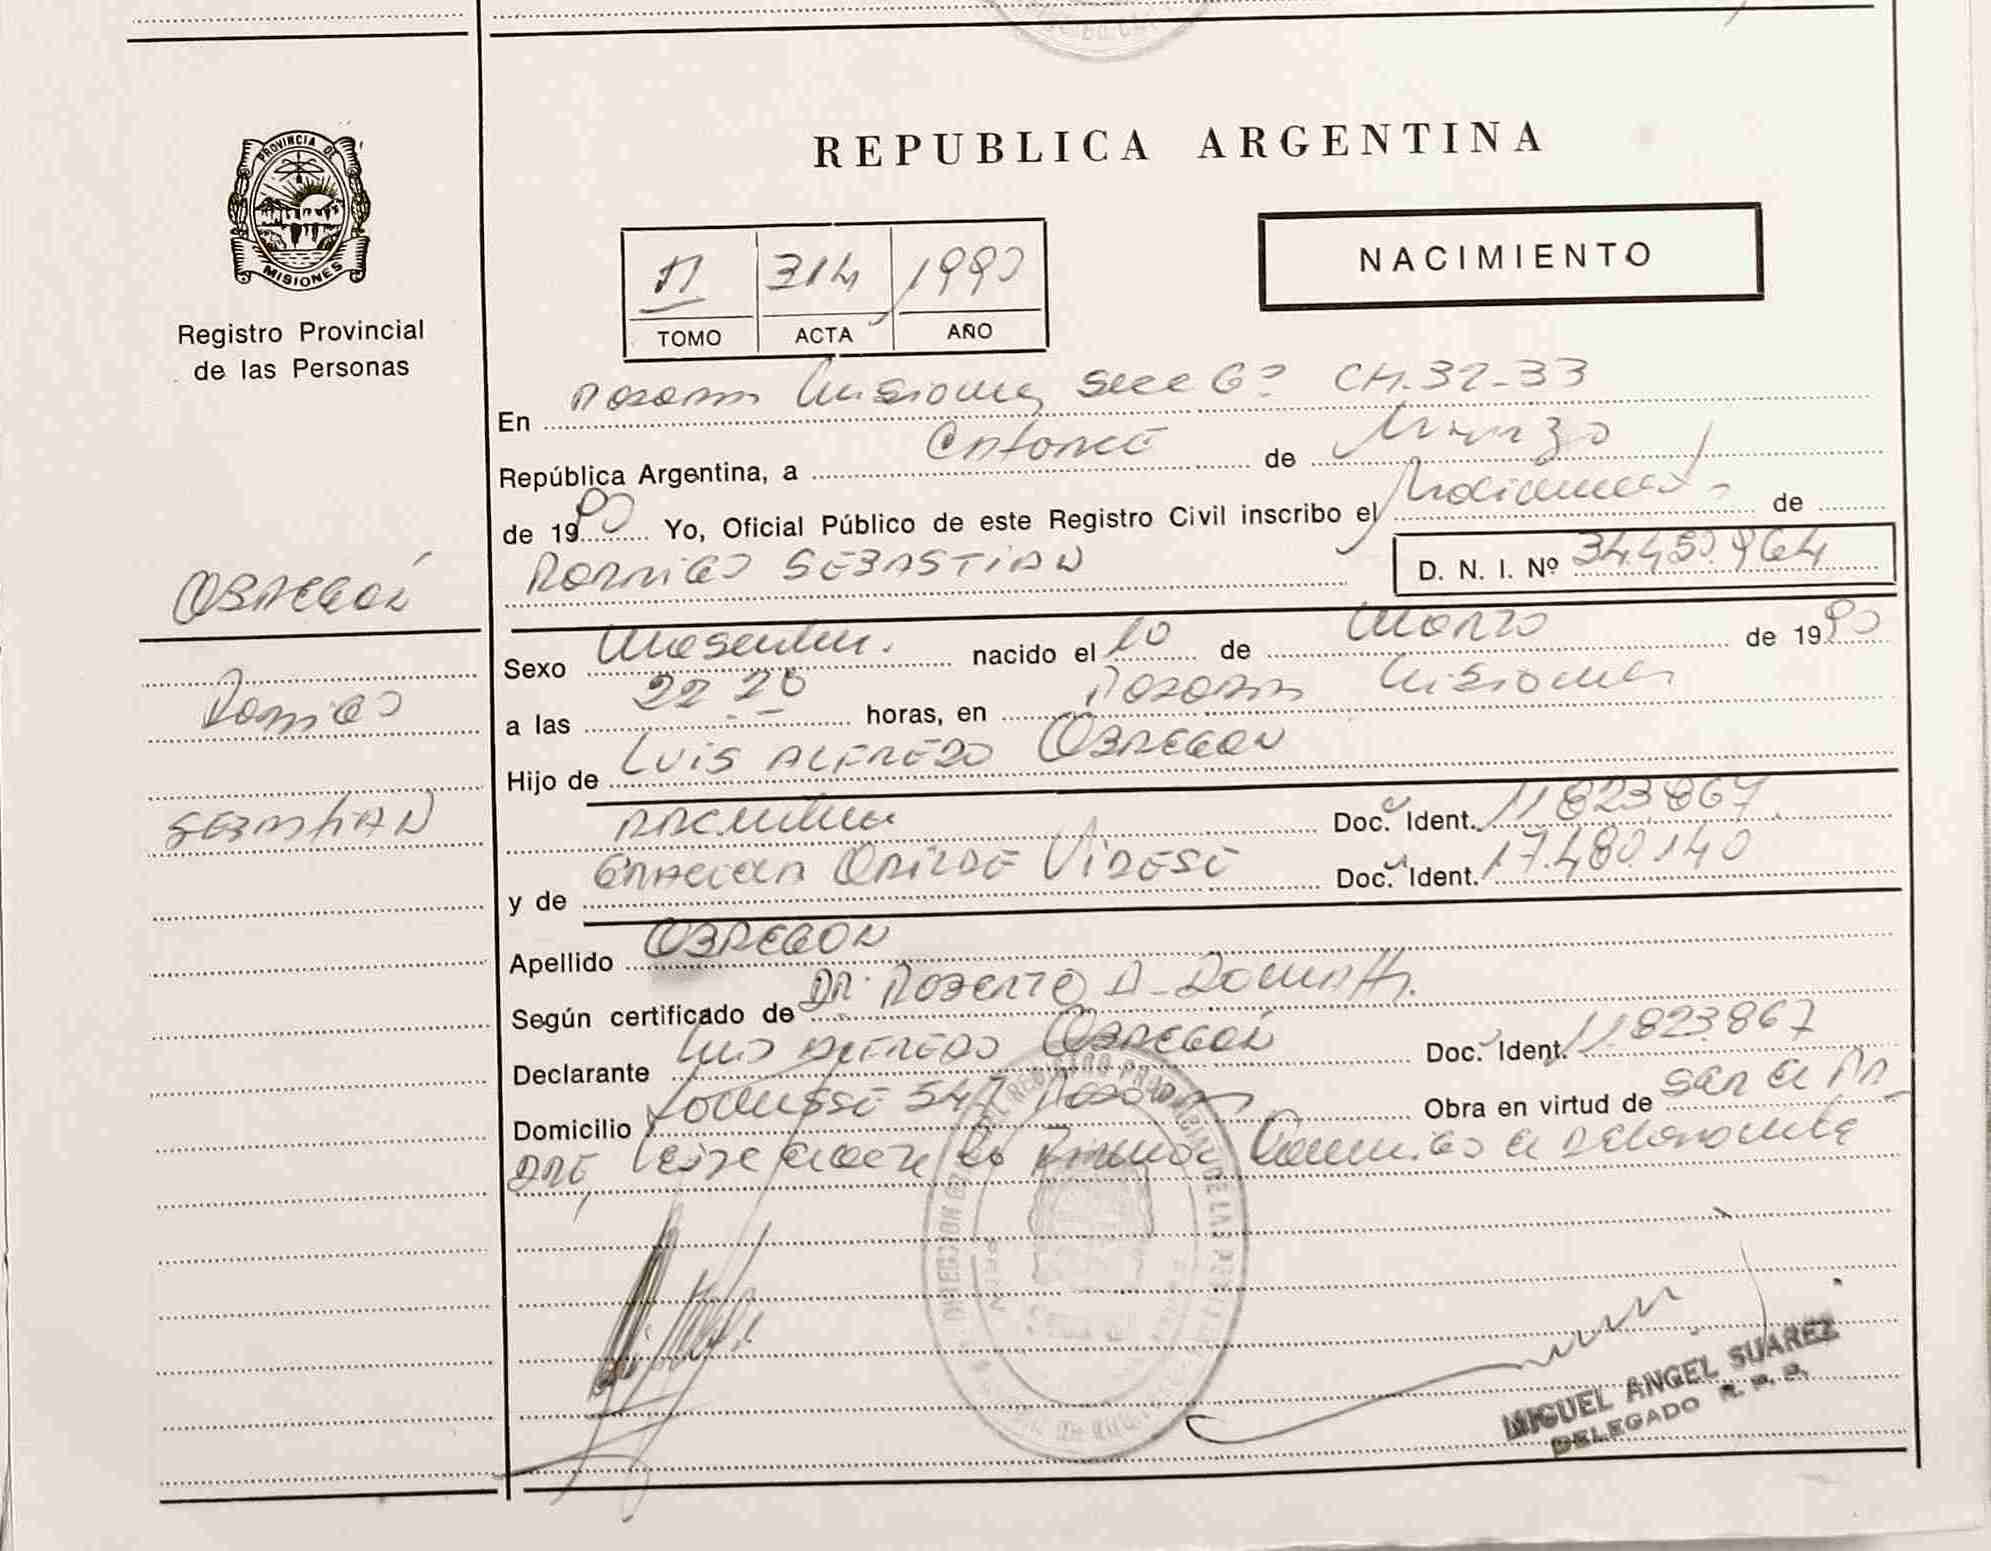 PROVINCIA DE
MISIONES
Registro Provincial
de las Personas
OBREGON
RODRIGO
SEBASTIAN
REPUBLICA ARGENTINA
NACIMIENTO
II 314 1990
TOMO ACTA AÑO
En Posadas Misiones Secc 6º CH. 32-33
República Argentina, a Catorce de Marzo
de 1990 Yo, Oficial Público de este Registro Civil inscribo el Nacimiento de
RODRIGO SEBASTIAN D. N. I. Nº 34.450.964
Sexo Masculino nacido el 10 de Marzo de 1990
a las 22 20 horas, en Posadas Misiones
Hijo de LUIS ALFREDO OBREGON
Argentino Doc. Ident. 11.823.867
y de GRACIELA Doc. Ident. 17.480.140
Apellido OBREGON
Según certificado de DR. ROBERTO A.
Declarante LUIS ALFREDO OBREGON Doc. Ident. 11.823.867
Domicilio 547 Posadas Obra en virtud de ser el PA
DRE,
MIGUEL ANGEL SUAREZ
DELEGADO R. P. P.